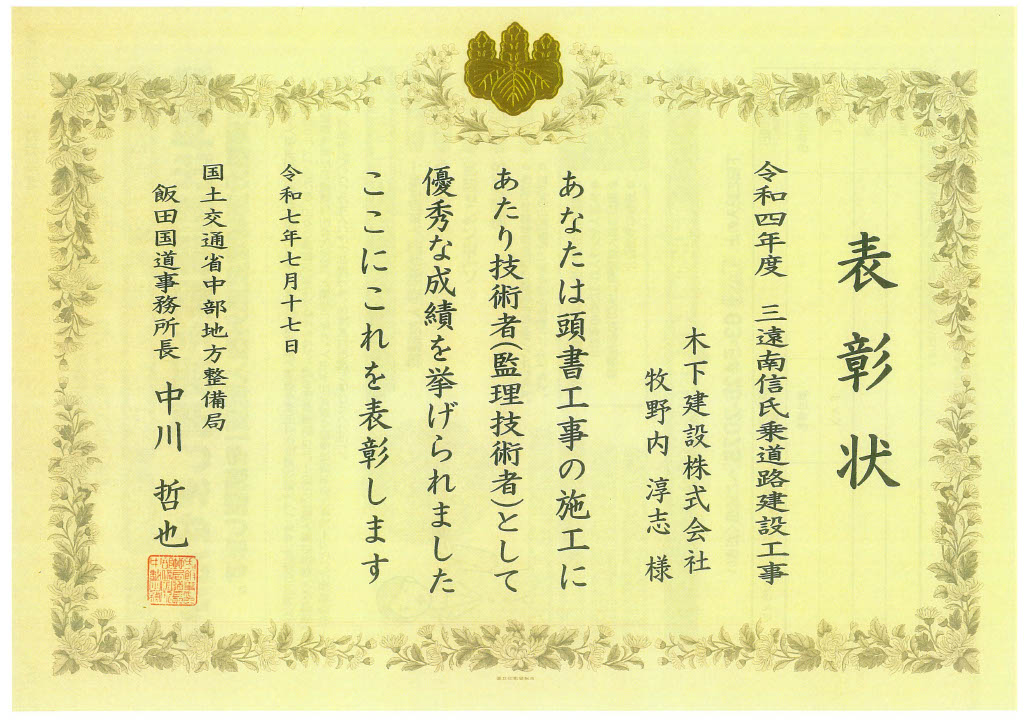 表彰状
令和四年度　三遠南信氏乗道路建設工事
木下建設株式会社
牧野内　淳志　様
あなたは頭書工事の施工に
あたり技術者(監理技術者)として
優秀な成績を挙げられました
ここにこれを表彰します
令和七年七月十七日
国土交通省中部地方整備局
飯田国道事務所長　中川　哲也